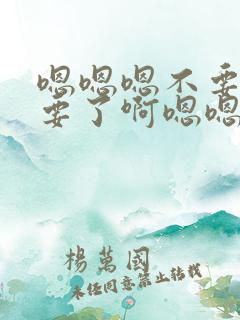 嗯嗯嗯不要
要了啊嗯嗯
楊萬國
未任同意禁止转载